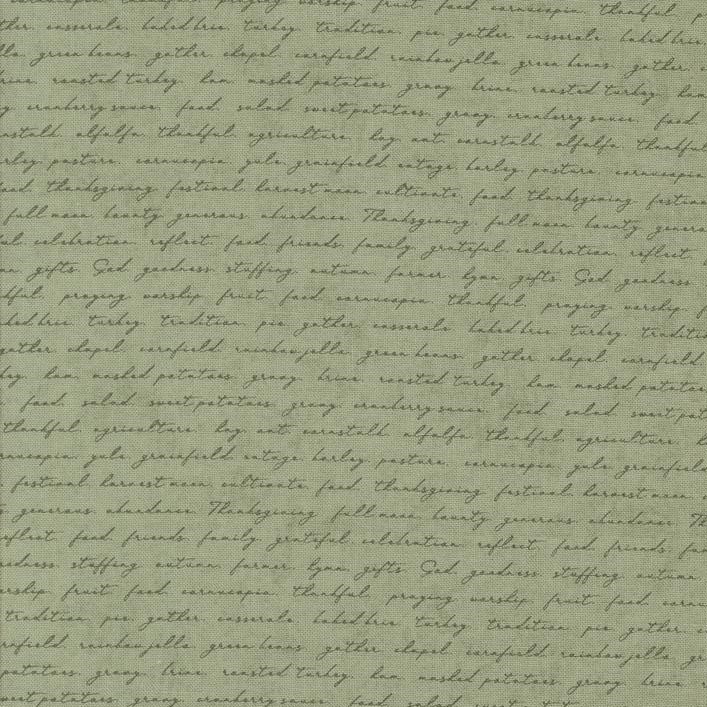 cornucopia. thankful. praying worship. fruit. food. cornucopia. thankful.
gather. casserole. baked brie. turkey. tradition. pie. gather. casserole. baked brie.
green beans. gather. chapel. cornfield. rainbow jello. green beans. gather.
brine. roasted turkey. ham. mashed potatoes. gravy. brine. roasted turkey. ham
cranberry sauce. food. salad sweet potatoes. gravy. cranberry sauce. food.
cornstalk. alfalfa. thankful. agriculture. hay. oat. cornstalk. alfalfa. thankful
barley. pasture. cornucopia. yule. grainfield. barley. pasture. cornucopia.
food. thanksgiving festival. harvest moon. cultivate. food. thanksgiving. festival
full moon. bounty generous. abundance. Thanksgiving. full moon. bounty generous
celebration. reflect. food. friends. family. grateful. celebration. reflect.
gifts. God. goodness. stuffing. autumn. farmer. hymn. gifts. God. goodness
praying worship. fruit. food. cornucopia. thankful. praying. worship.
baked brie. turkey. tradition. pie. gather. casserole. baked brie. turkey. tradition
gather. chapel. cornfield. rainbow jello. green beans. gather. chapel. cornfield.
ham. mashed potatoes. gravy. brine. roasted turkey. ham. mashed potatoes
food. salad. sweet potatoes. gravy. cranberry sauce. food. salad. sweet
thankful. agriculture. hay. oat. cornstalk. alfalfa. thankful. agriculture.
cornucopia. yule. grainfield. barley. pasture. cornucopia. yule. grainfield
festival. harvest moon. cultivate. food. thanksgiving. festival. harvest moon.
generous. abundance. Thanksgiving. full moon. bounty generous. abundance. Th
reflect. food. friends. family. grateful. celebration. reflect. food. friends.
goodness. stuffing autumn. farmer. hymn. gifts. God. goodness. stuffing. autumn
worship. fruit. food. cornucopia. thankful. praying. worship. fruit. food.
tradition. pie. gather. casserole. baked brie. turkey. tradition. pie. gather.
cornfield. rainbow jello. green beans. gather. chapel. cornfield. rainbow jello.
potatoes. gravy. brine. roasted turkey. ham. mashed potatoes. gravy. brine.
sweet potatoes. gravy. cranberry sauce. food. salad